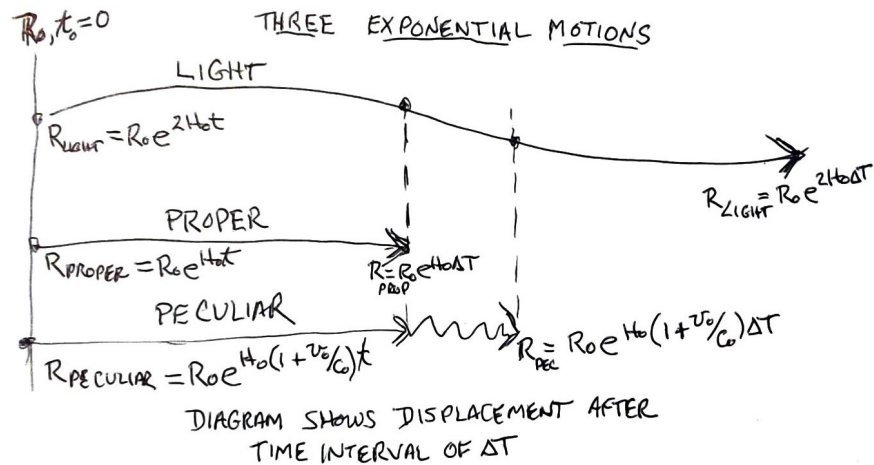 R₀, t₀=0
THREE EXPONENTIAL MOTIONS
LIGHT
R_LIGHT = R₀e^{2H₀t}
R_LIGHT = R₀e^{2H₀ΔT}
PROPER
R_PROPER = R₀e^{H₀t}
R_PROP = R₀e^{H₀ΔT}
PECULIAR
R_PECULIAR = R₀e^{H₀(1+v₀/c₀)t}
R_PEC = R₀e^{H₀(1+v₀/c₀)ΔT}
DIAGRAM SHOWS DISPLACEMENT AFTER
TIME INTERVAL OF ΔT